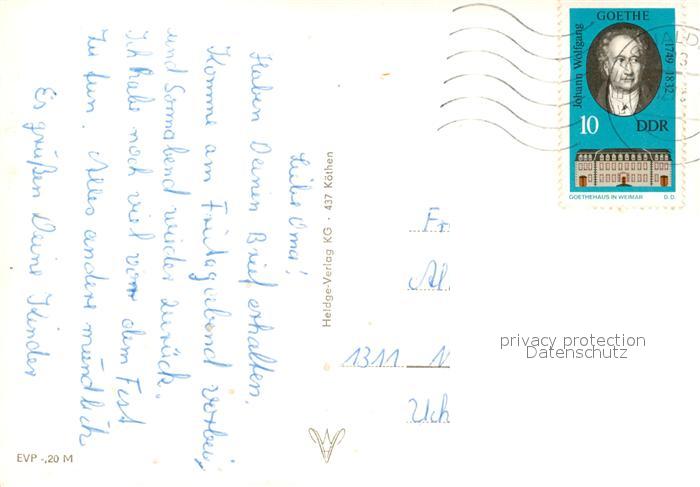 Liebe Oma!
Haben Deinen Brief erhalten.
Komme am Freitagabend vorbei,
und Sonnabend wieder zurück.
Ich habe noch viel vor dem Fest
zu tun. Alles andere mündlich
Es grüßen Deine Kinder
Heldge-Verlag KG · 437 Köthen
EVP -,20 M
Johann Wolfgang
GOETHE
1749-1832
10 DDR
GOETHEHAUS IN WEIMAR D. D.
Fr
Al
1311
Uch
privacy protection
Datenschutz